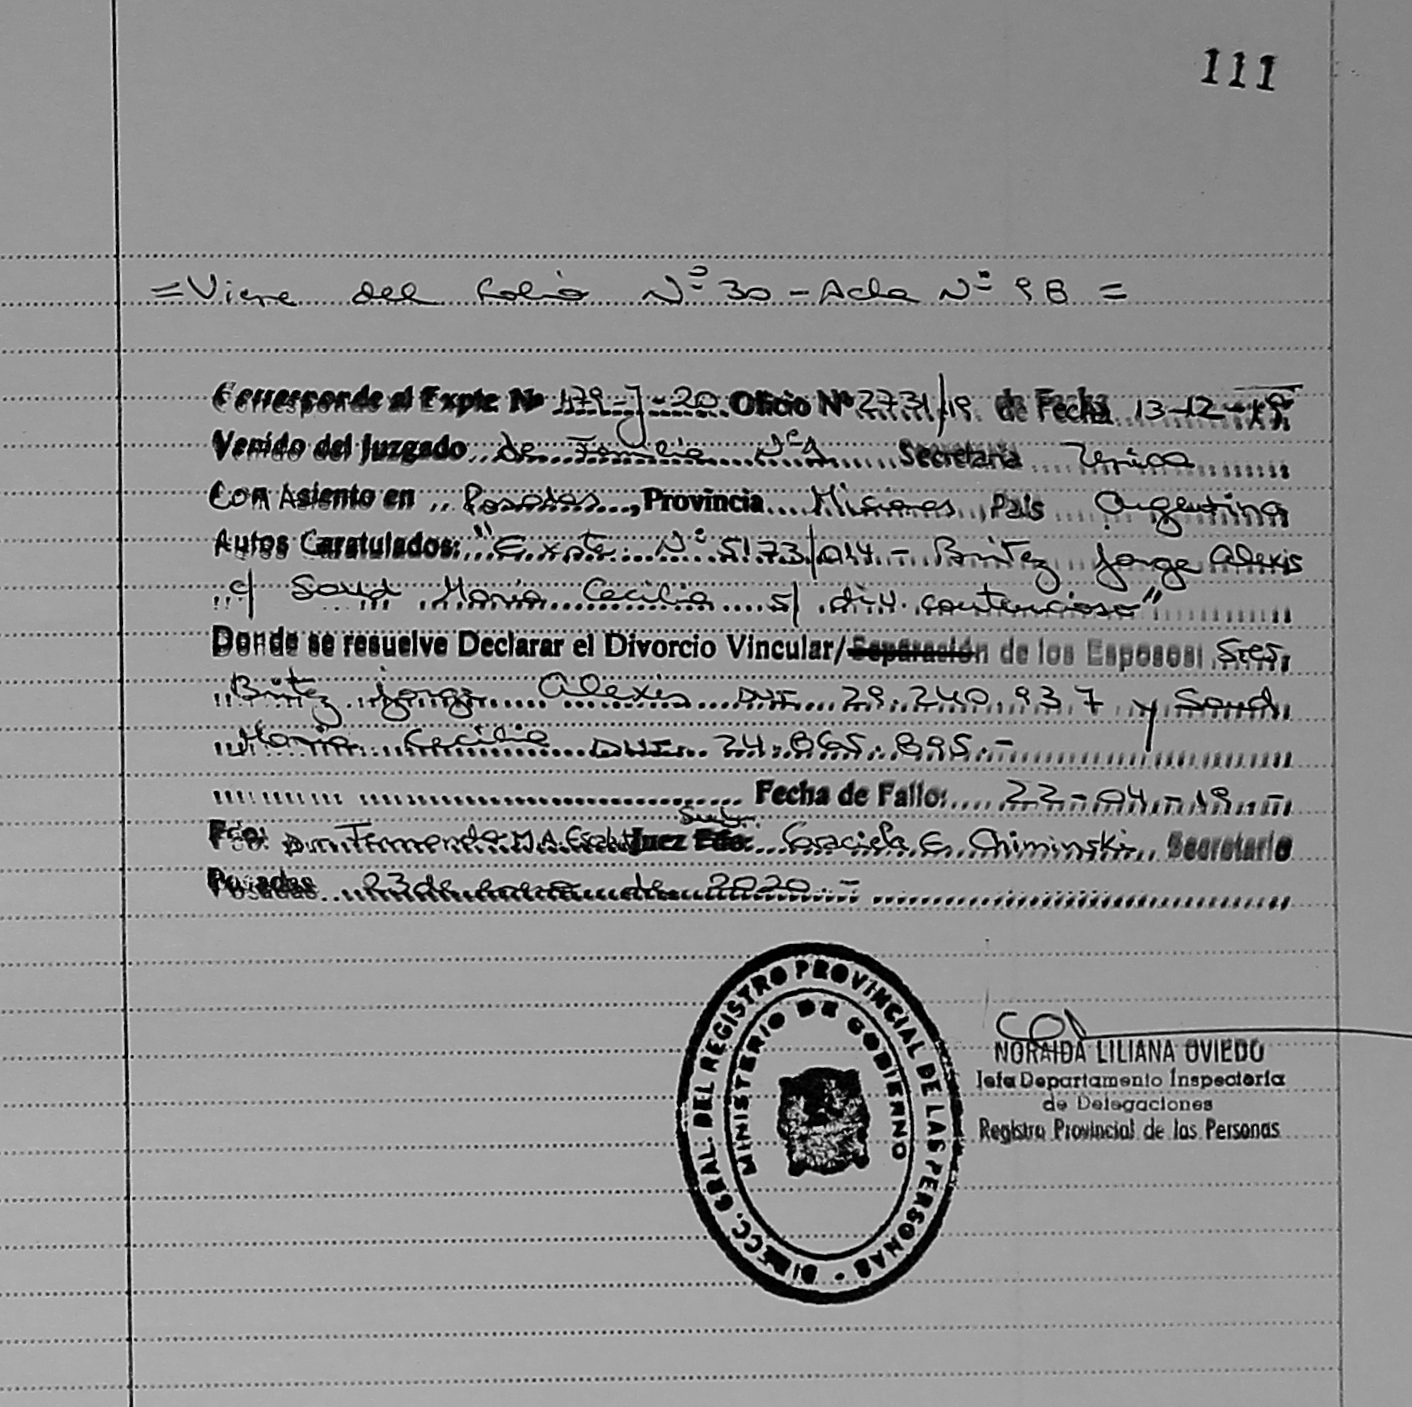 111
= Viene del folio Nº 30 - Acta Nº 98 =
Corresponde al Expte Nº 179-J-20 Oficio Nº 2731/19 de Fecha 13-12-19
Venido del Juzgado de Familia Nº 1 Secretaria Unica
Con Asiento en Posadas, Provincia Misiones País Argentina
Autos Caratulados: "Expte Nº 5173/014 - Britez Jorge Alexis
c/ Saud María Cecilia s/ div. contencioso"
Donde se resuelve Declarar el Divorcio Vincular/Separación de los Esposos: Sres.
Britez Jorge Alexis DNI 29.240.937 y Saud
María Cecilia DNI 24.865.895.-
Fecha de Fallo: 22-04-19.-
Fdo: Fernando M.A. Juez Fdo: Graciela E. Chiminski Secretario
Posadas 23 de de 2020.-
DIRECC. GRAL. DEL REGISTRO PROVINCIAL DE LAS PERSONAS
MINISTERIO DE GOBIERNO
NORAIDA LILIANA OVIEDO
Jefa Departamento Inspectoría
de Delegaciones
Registro Provincial de las Personas